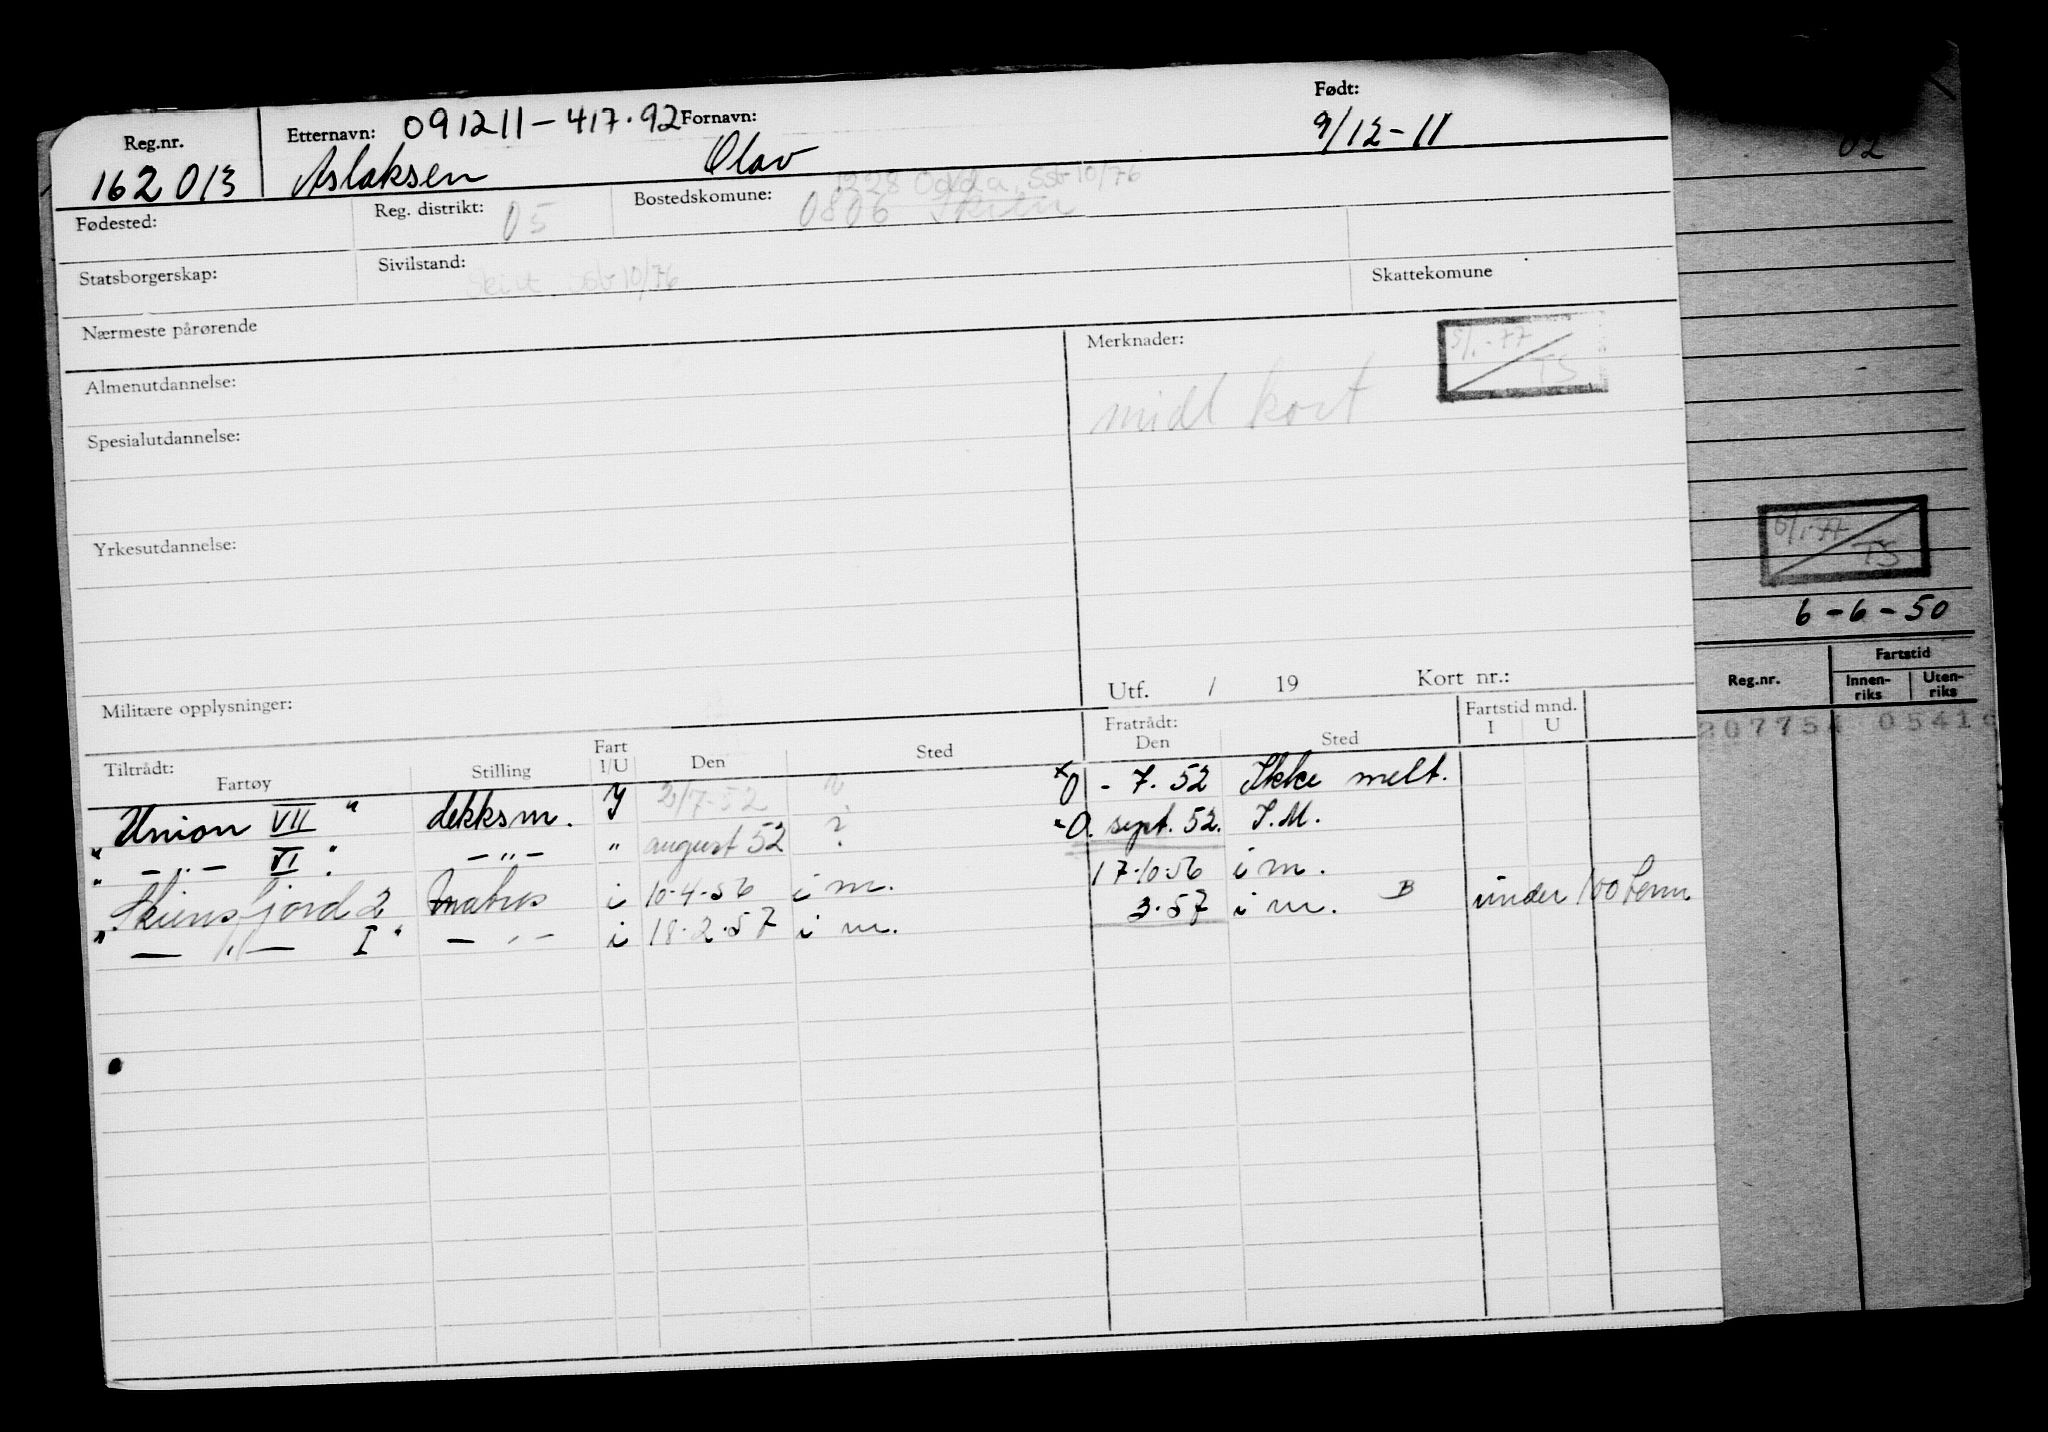 Reg.nr. Etternavn: 091211-417.92 Fornavn: Født:
162013 Aslaksen Olav 9/12-11
02
Fødested: Reg. distrikt: 05 Bostedskomune: 1228 Odda, Sst 10/76
0806 Skien
Statsborgerskap: Sivilstand: Skilt Sst 10/76 Skattekomune
Nærmeste pårørende Merknader: 5/1-77 TS
Almenutdannelse: midl kort
Spesialutdannelse:
Yrkesutdannelse: 6/1-77 TS
6-6-50
Militære opplysninger: Utf. / 19 Kort nr.:
Reg.nr. Fartstid
Innen-riks Uten-riks
207754 0541
Tiltrådt: Fart Fratrådt: Fartstid mnd.
Fartøy Stilling I/U Den Sted Den Sted I U
"Union VII" dekksm. I 2/7-52 ? x0 - 7.52 Ikke melt.
" - " - VI " - " - " august 52 ? -0. sept. 52. I.M.
"Skiensfjord 2 Matros i 10-4-56 i m. 17-10-56 i m.
" — " — I" — " — i 18-2-57 i m. 3.57 i m. B under 100 tonn